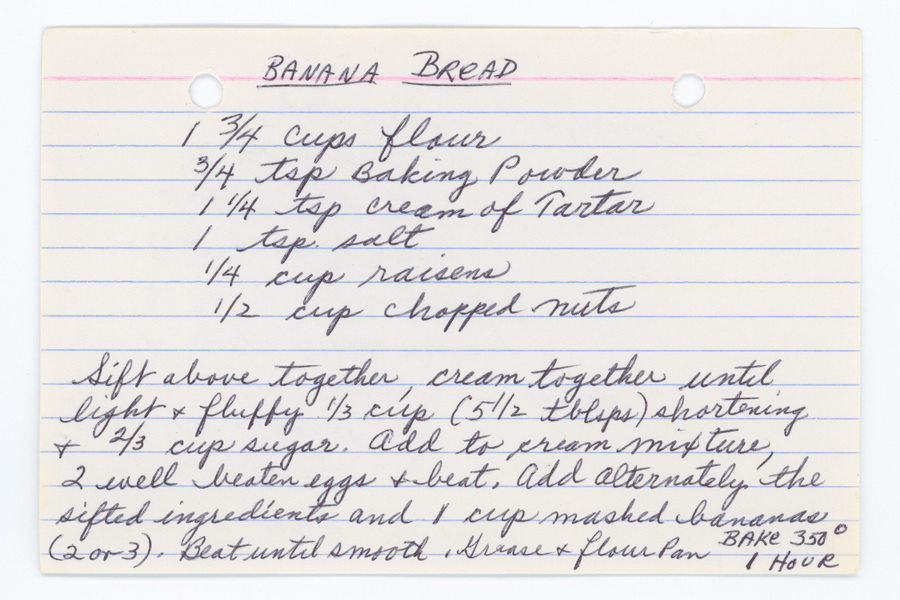 BANANA BREAD
1 3/4 cups flour
3/4 tsp Baking Powder
1 1/4 tsp cream of Tartar
1 tsp. salt
1/4 cup raisens
1/2 cup chopped nuts
Sift above together, cream together until
light & fluffy 1/3 cup (5 1/2 tblsps) shortening
& 2/3 cup sugar. Add to cream mixture,
2 well beaten eggs & beat. Add alternately the
sifted ingredients and 1 cup mashed bananas
(2 or 3). Beat until smooth. Grease & flour Pan
BAKE 350°
1 HOUR